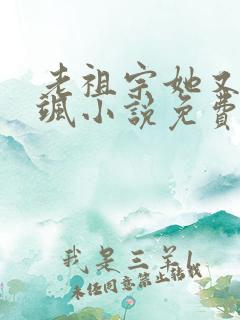 老祖宗她又
飒小说免费
我是三羊l
未经同意禁止转载